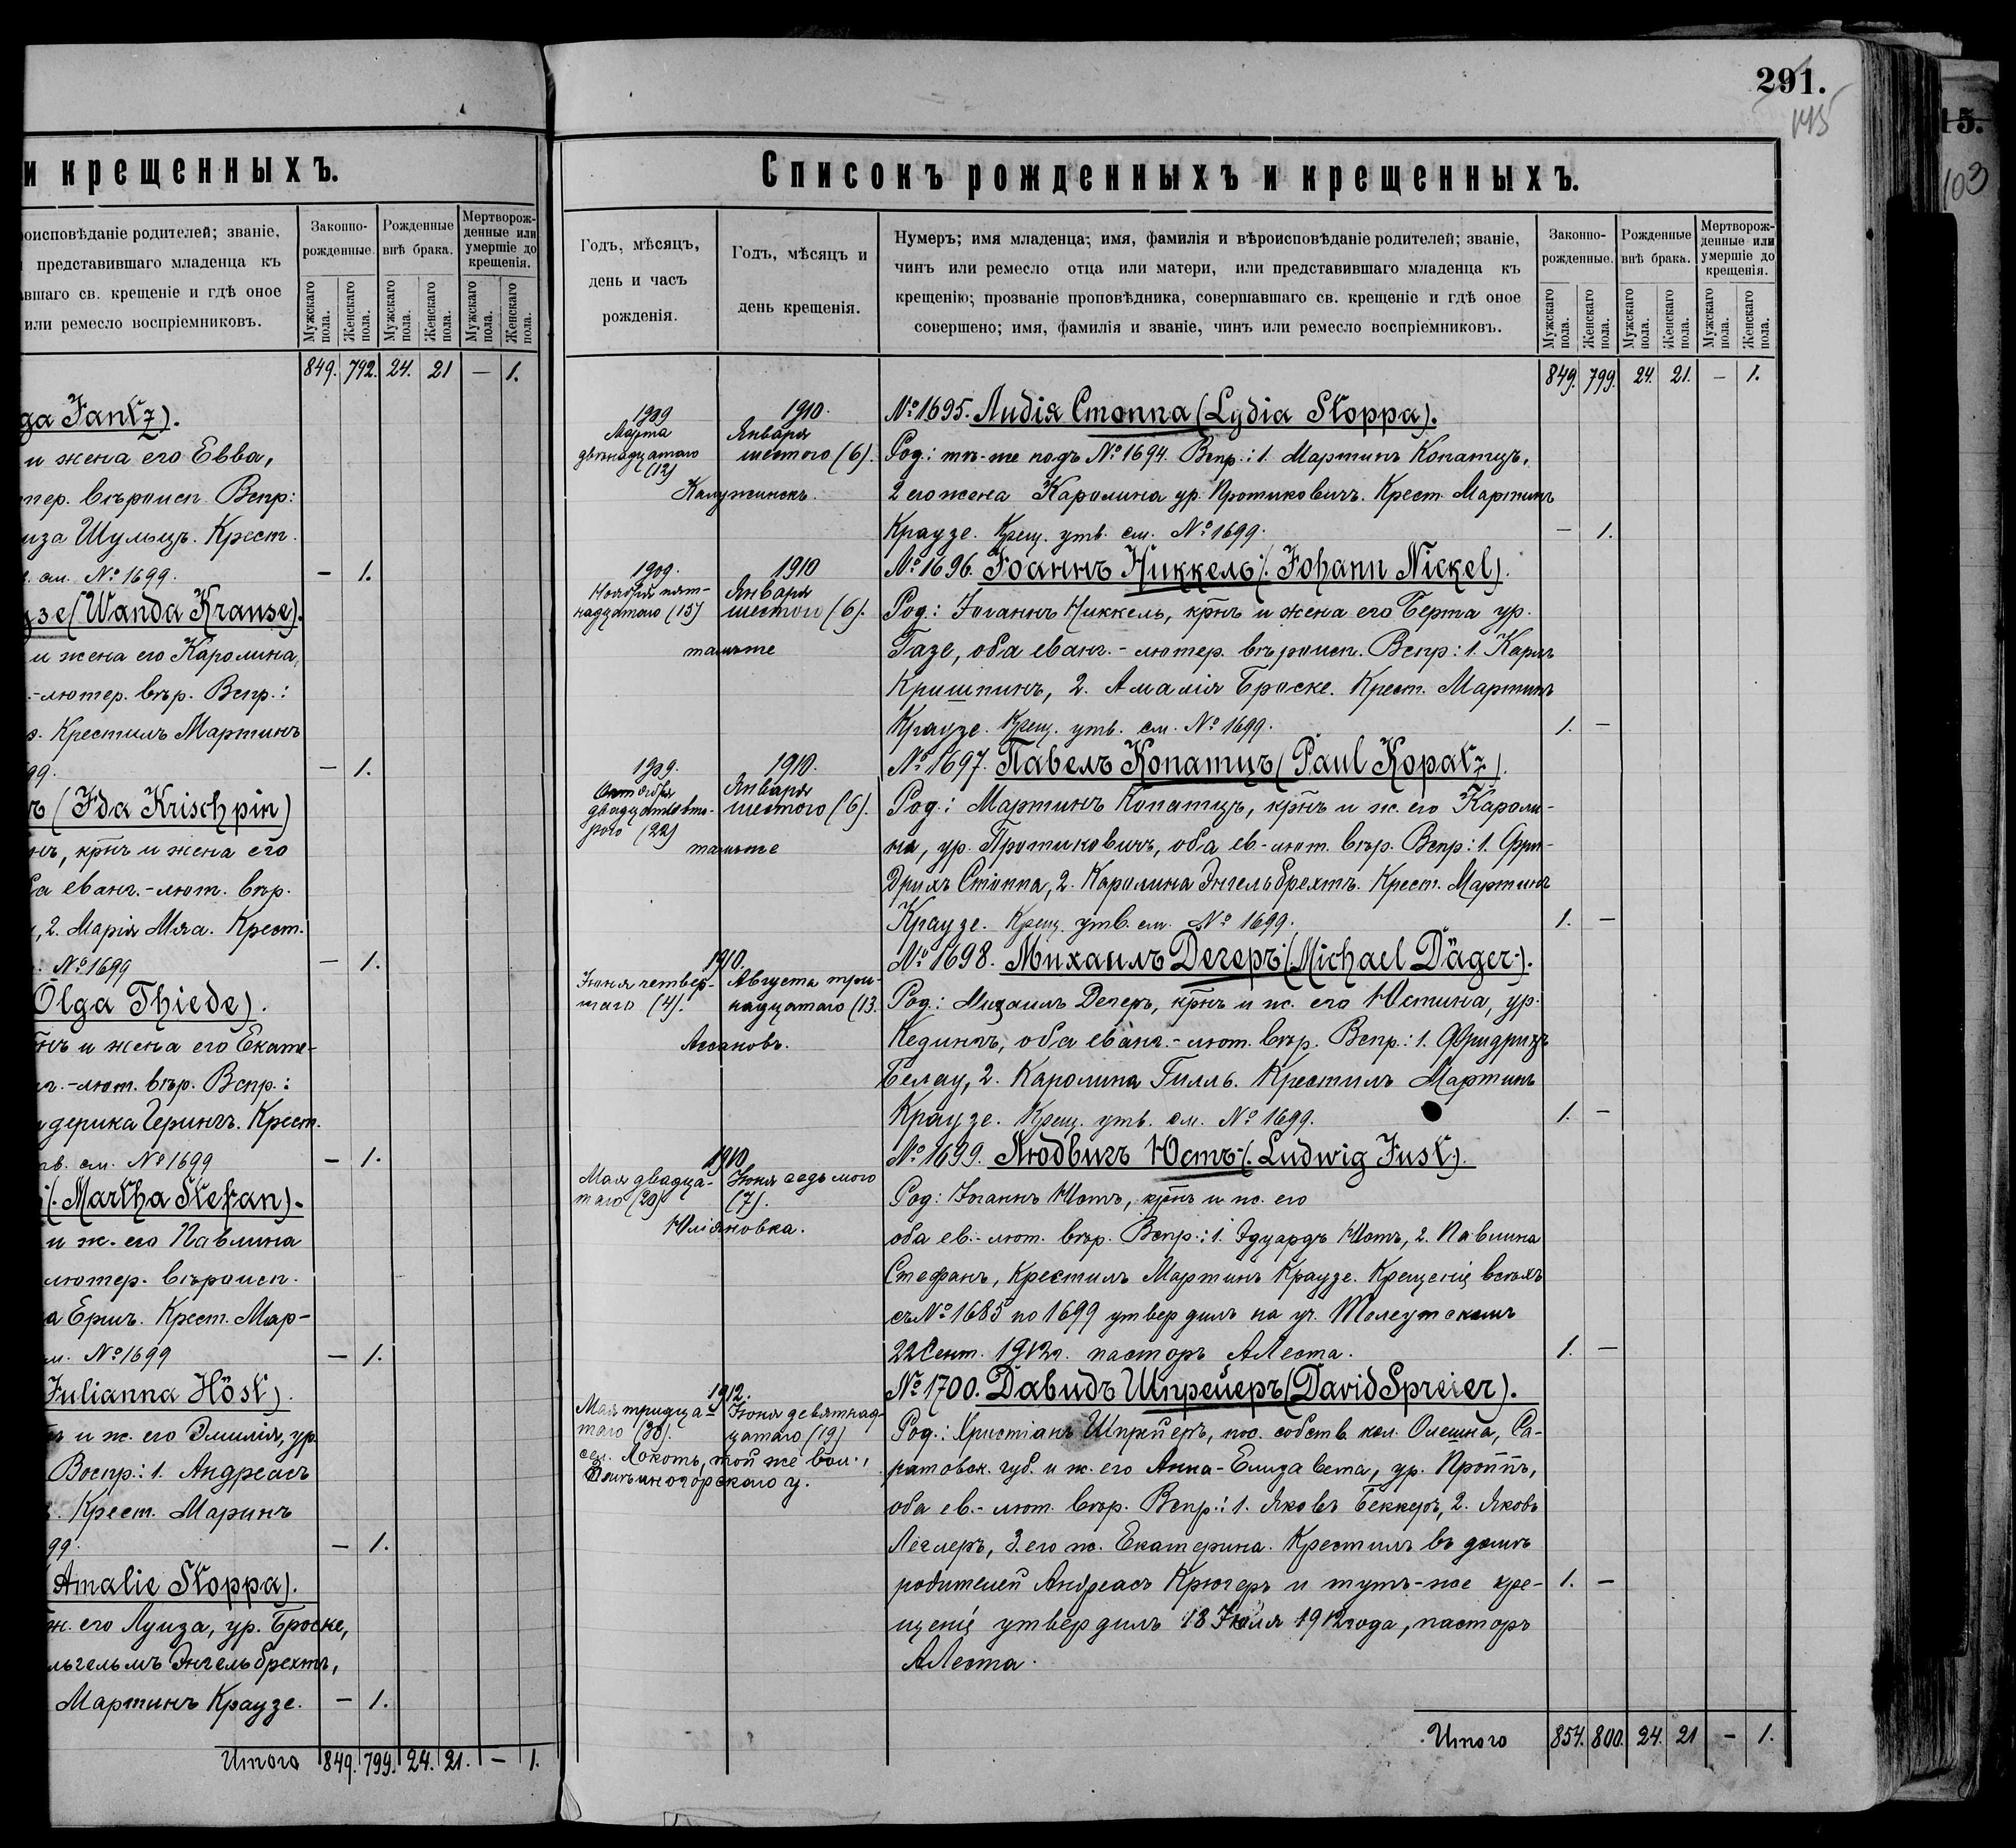 и крещенныхъ.
оисповѣданіе родителей; званіе,
представившаго младенца къ
вшаго св. крещеніе и гдѣ оное
или ремесло воспріемниковъ.
Законно-
рожденные.
Рожденные
внѣ брака.
Мертворож-
денные или
умершіе до
крещенія.
Мужскаго пола.
Женскаго пола.
Мужскаго пола.
Женскаго пола.
Мужскаго пола.
Женскаго пола.
849. 792. 24. 21 — 1.
ga Jantz).
и жена его Евва,
тер. вѣроисп. Вспр:
иза Шульцъ. Крест.
см. №1699. — 1.
узе (Wanda Krause).
и жена его Каролина,
-лютер. вѣр. Вспр.:
Крестилъ Мартинъ
99. — 1.
ъ (Ida Krischpin)
нъ, крнъ и жена его
а еванг.-лют. вѣр.
, 2. Марія Мяа. Крест.
№1699 — 1.
Olga Thiede).
нъ и жена его Екате-
г.-лют. вѣр. Вспр.:
дерика Герингъ. Крест.
ов. см. №1699 — 1.
(Martha Stefan).
и ж. его Павлина
лютер. вѣроисп.
а Ершъ. Крест. Мар-
м. №1699 — 1.
Julianna Höst).
ъ и ж. его Эмилія, ур.
Воспр.: 1. Андреасъ
Крест. Маринъ
99. — 1.
Amalie Stoppa).
ж. его Луиза, ур. Броске,
льгельмъ Энгельбрехтъ,
Мартинъ Краузе. — 1.
Итого 849. 799. 24. 21. — 1.
291.
145
Списокъ рожденныхъ и крещенныхъ.
Годъ, мѣсяцъ,
день и часъ
рожденія.
Годъ, мѣсяцъ и
день крещенія.
Нумеръ; имя младенца; имя, фамилія и вѣроисповѣданіе родителей; званіе,
чинъ или ремесло отца или матери, или представившаго младенца къ
крещенію; прозваніе проповѣдника, совершавшаго св. крещеніе и гдѣ оное
совершено; имя, фамилія и званіе, чинъ или ремесло воспріемниковъ.
Законно-
рожденные.
Рожденные
внѣ брака.
Мертворож-
денные или
умершіе до
крещенія.
Мужскаго пола.
Женскаго пола.
Мужскаго пола.
Женскаго пола.
Мужскаго пола.
Женскаго пола.
849. 799. 24. 21. — 1.
1909
Марта
двѣнадцатаго
(12)
1910.
Января
шестого (6).
Калужинскъ.
№1695. Лидія Стоппа (Lydia Stoppa).
Род.: тѣ-же подъ №1694. Вспр.: 1. Мартинъ Копатцъ,
2 его жена Каролина ур. Протиковичъ. Крест. Мартинъ
Краузе. Крещ. утв. см. №1699. — 1.
1909.
Ноября пят-
надцатаго (15)
1910
Января
шестого (6).
тамъ же
№1696. Іоаннъ Никкель (Johann Nickel).
Род.: Іоганнъ Никкель, крнъ и жена его Берта ур.
Газе, оба еванг.-лютер. вѣроисп. Вспр: 1. Карлъ
Кришпинъ, 2. Амалія Броске. Крест. Мартинъ
Краузе. Крещ. утв. см. №1699. 1. —
1909.
Октября
двадцать вто-
рого (22)
1910.
Января
шестого (6).
тамъ же
№1697. Павелъ Копатцъ (Paul Kopatz).
Род.: Мартинъ Копатцъ, крнъ и ж. его Кароли-
на, ур. Протиковичъ, оба ев-лют. вѣр. Вспр: 1. Фри-
дрихъ Стоппа, 2. Каролина Энгельбрехтъ. Крест. Мартинъ
Краузе. Крещ. утв. см. №1699. 1. —
1910.
Іюня четвер-
таго (4).
Августа три-
надцатаго (13.
Ассановъ.
№1698. Михаилъ Дегеръ (Michael Däger).
Род.: Михаилъ Дегеръ, крнъ и ж. его Юстина, ур.
Кедингъ, оба еванг.-лют. вѣр. Вспр.: 1. Фридрихъ
Белау, 2. Каролина Гилль. Крестилъ Мартинъ
Краузе. Крещ. утв. см. №1699. 1. —
1910
Мая двадца-
таго (20)
Іюня седьмого
(7).
Юліановка.
№1699. Людвигъ Юстъ (Ludwig Just).
Род: Іоганнъ Юстъ, крнъ и ж. его
оба ев.-лют. вѣр. Вспр.: 1. Эдуардъ Юстъ, 2. Павлина
Стефанъ, Крестилъ Мартинъ Краузе. Крещеніе всѣхъ
съ №1685 по 1699 утвердилъ на уч. Телеутскомъ
22 Сент. 1912г. пасторъ АЛеста. 1. —
1912.
Мая тридца-
таго (30).
Іюня девятнад-
цатаго (19)
сел. Локоть, той же вол.,
Змѣиногорскаго у.
№1700. Давидъ Шпрейеръ (David Spreier).
Род.: Христіанъ Шпрейеръ, пос. собств. кол. Олешна, Са-
ратовск. губ. и ж. его Анна-Елизавета, ур. Проппъ,
оба ев.-лют. вѣр. Вспр.: 1. Яковъ Беккеръ, 2. Яковъ
Леглеръ, 3. его ж. Екатерина. Крестилъ въ домѣ
родителей Андреасъ Крюгеръ и тутъ-же кре- 1. —
щеніе утвердилъ 18 Іюля 1912 года, пасторъ
АЛеста.
Итого 854. 800. 24. 21 — 1.
15.
103